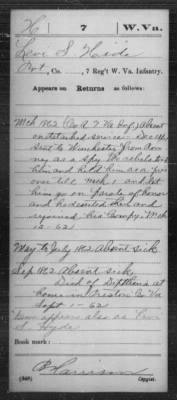 H 7 W. Va.
Levi S. Hide
Pvt, Co. , 7 Reg't W. Va. Infantry.
Appears on Returns as follows:
Mch 1862 (Co A 7 Va Inf) Absent
on detached service - Dec 1861
sent to Winchester from Rom
ney as a spy the rebels took
him and held him as a pris
oner till Mch 1, and let
him go on parole of honor
and he deserted them and
rejoined his Compy Mch
12-62
May to July 1862 Absent sick
Sep 1862 Absent sick
Died of Diptheria at
home in Preston Co Va
Sept 1-62
Name appears also as Levi
S. Hyde
Book mark:
Harrison
(546) Copyist.